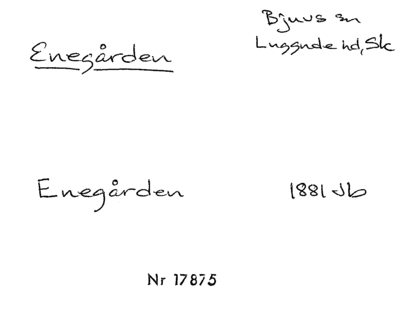 Bjuvs sn
Enegården
Luggude hd, Sk
Enegården
1881 Jb
Nr 17875